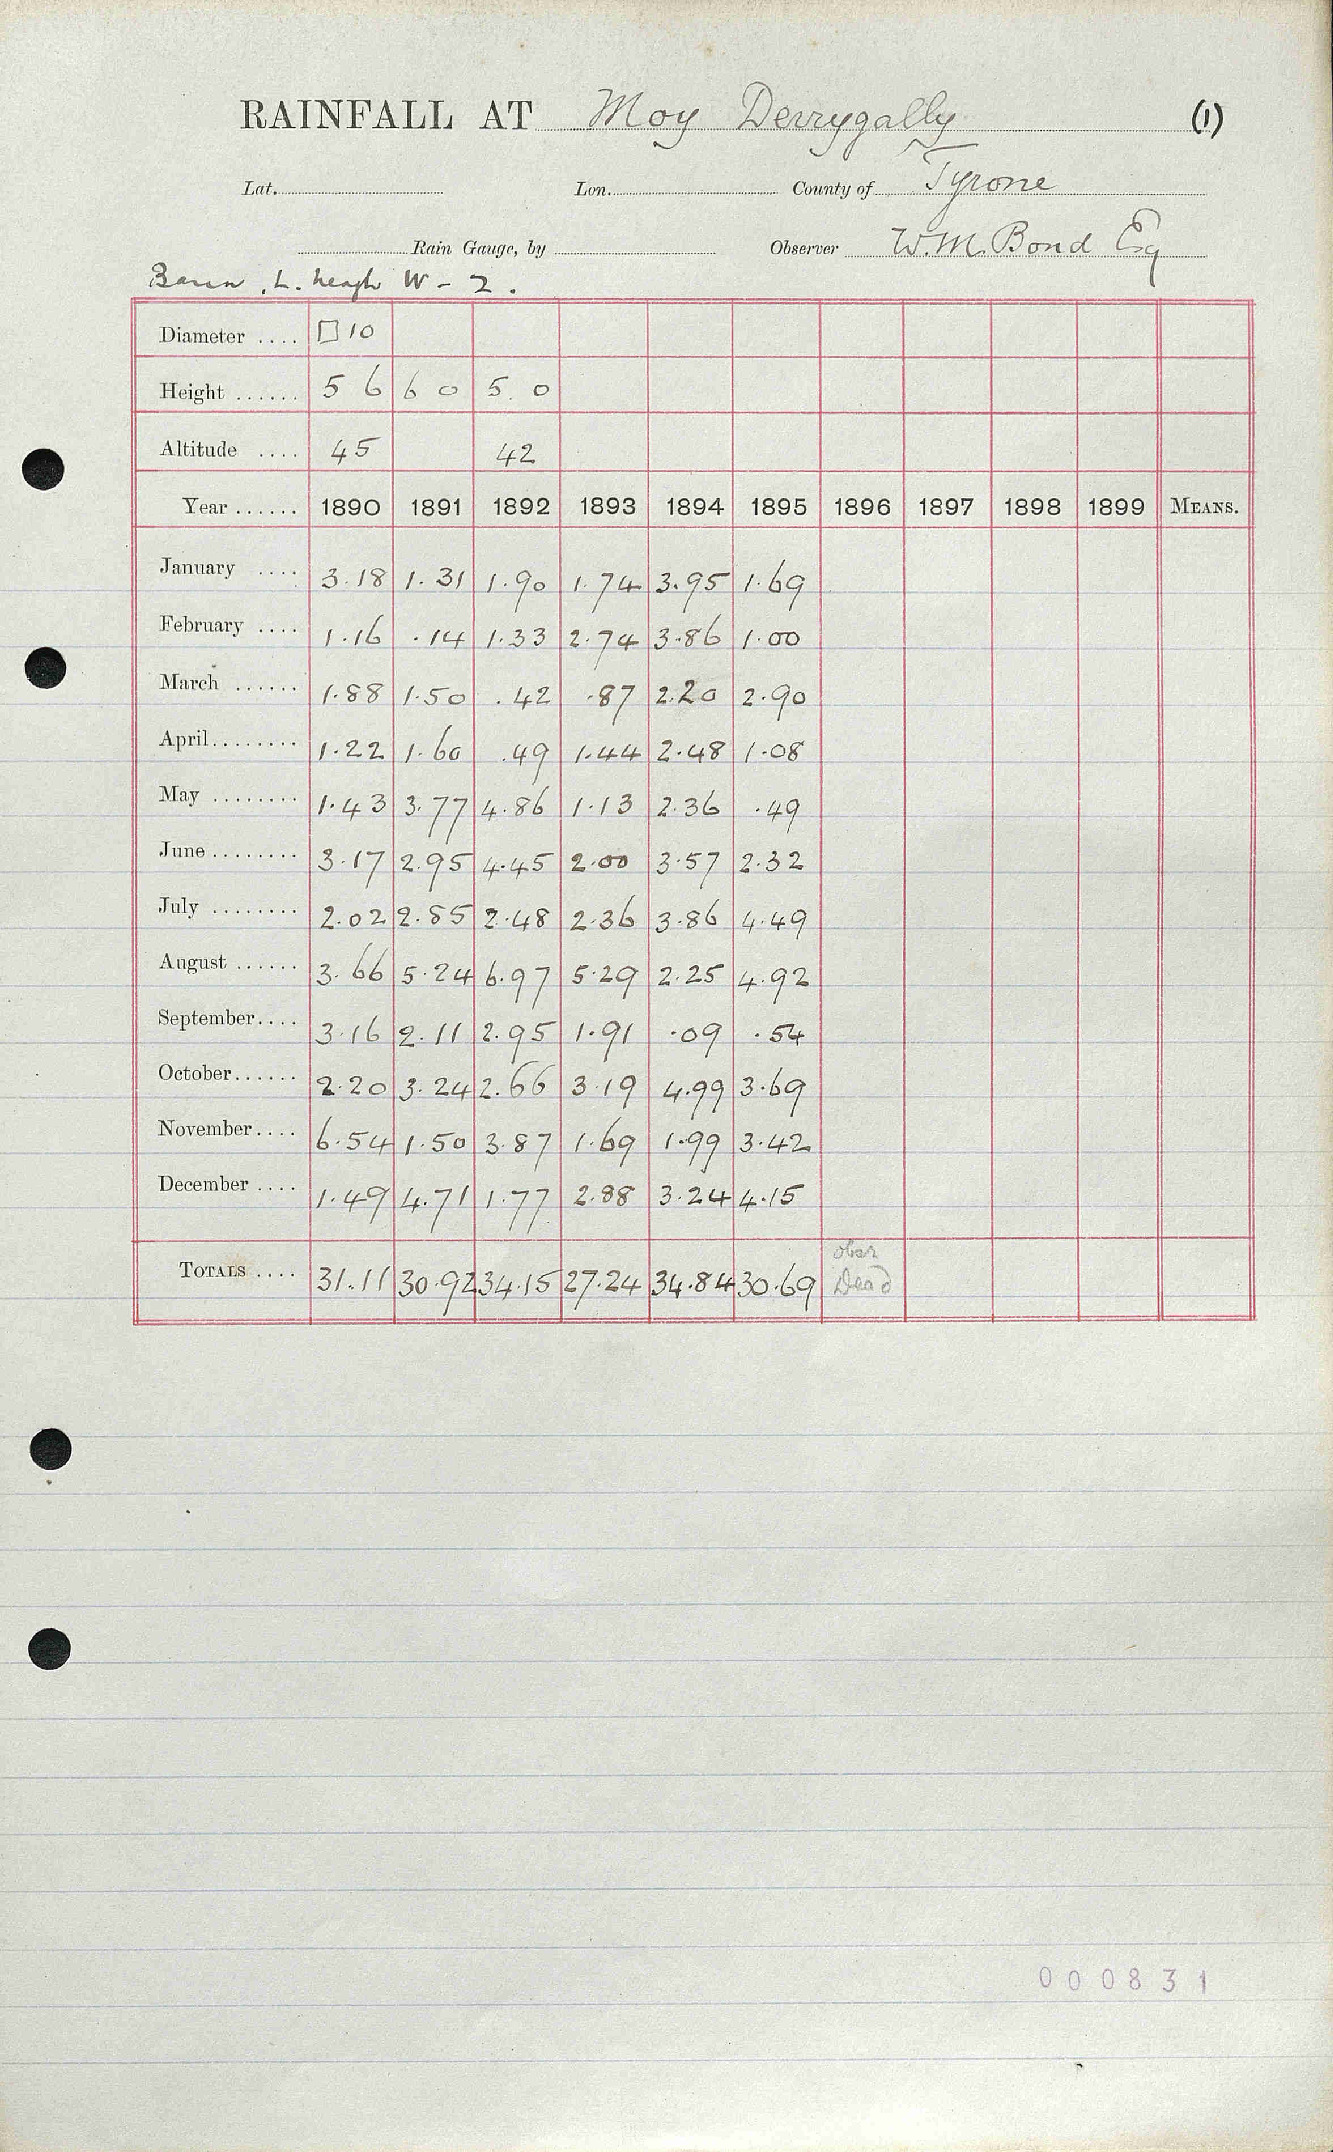 RAINFALL AT Moy Derrygally (1)
Lat. Lon. County of Tyrone
Rain Gauge, by Observer W.M. Bond Esq
L. Neagh W - 2.
Diameter .... □ 10
Height ...... 5 6 6 0 5 0
Altitude .... 45 42
Year ...... 1890 1891 1892 1893 1894 1895 1896 1897 1898 1899 MEANS.
January .... 3.18 1.31 1.90 1.74 3.95 1.69
February .... 1.16 .14 1.33 2.74 3.86 1.00
March ...... 1.88 1.50 .42 .87 2.20 2.90
April........ 1.22 1.60 .49 1.44 2.48 1.08
May ........ 1.43 3.77 4.86 1.13 2.36 .49
June ........ 3.17 2.95 4.45 2.00 3.57 2.32
July ........ 2.02 2.85 2.48 2.36 3.86 4.49
August ...... 3.66 5.24 6.97 5.29 2.25 4.92
September.... 3.16 2.11 2.95 1.91 .09 .54
October...... 2.20 3.24 2.66 3.19 4.99 3.69
November.... 6.54 1.50 3.87 1.69 1.99 3.42
December .... 1.49 4.71 1.77 2.88 3.24 4.15
obsr
TOTALS .... 31.11 30.92 34.15 27.24 34.84 30.69 Dead
000831